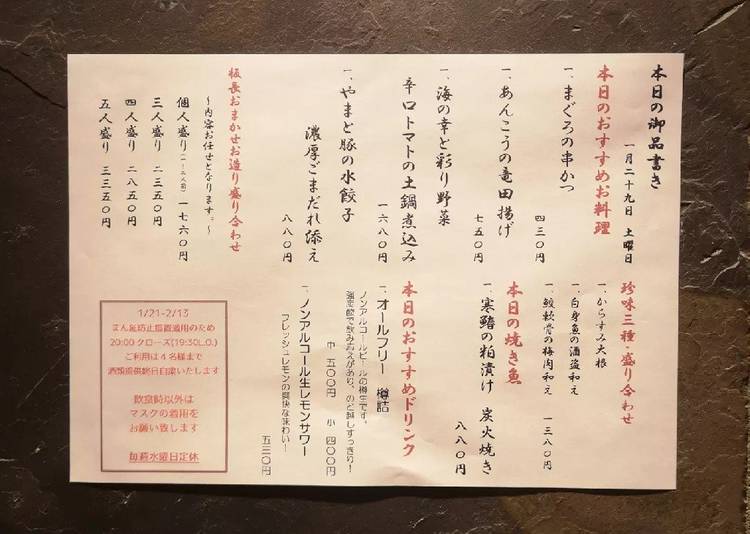 本日の御品書き
一月二十九日 土曜日
本日のおすすめお料理
一、まぐろの串かつ
四三〇円
一、あんこうの竜田揚げ
七五〇円
一、海の幸と彩り野菜
辛口トマトの土鍋煮込み
一六八〇円
一、やまと豚の水餃子
濃厚ごまだれ添え
八八〇円
板長おまかせお造り盛り合わせ
〜内容お任せとなります。〜
個人盛り(一〜二人前) 一七六〇円
三人盛り 二三五〇円
四人盛り 二八五〇円
五人盛り 三三五〇円
珍味三種・盛り合わせ
一、からすみ大根
一、白身魚の酒盗和え
一、鮫軟骨の梅肉和え 一三八〇円
本日の焼き魚
一、寒鰆の粕漬け 炭火焼き
八八〇円
本日のおすすめドリンク
一、オールフリー 樽詰
ノンアルコールビールの樽生です。
強炭酸で飲みごたえがあり、のど越しすっきり!
中 五〇〇円 小 四〇〇円
一、ノンアルコール生レモンサワー
フレッシュレモンの爽快な味わい!
五三〇円
1/21-2/13
まん延防止措置適用のため
20:00 クローズ(19:30L.O.)
ご利用は4名様まで
酒類提供終日自粛いたします
飲食時以外は
マスクの着用を
お願い致します
毎週水曜日定休